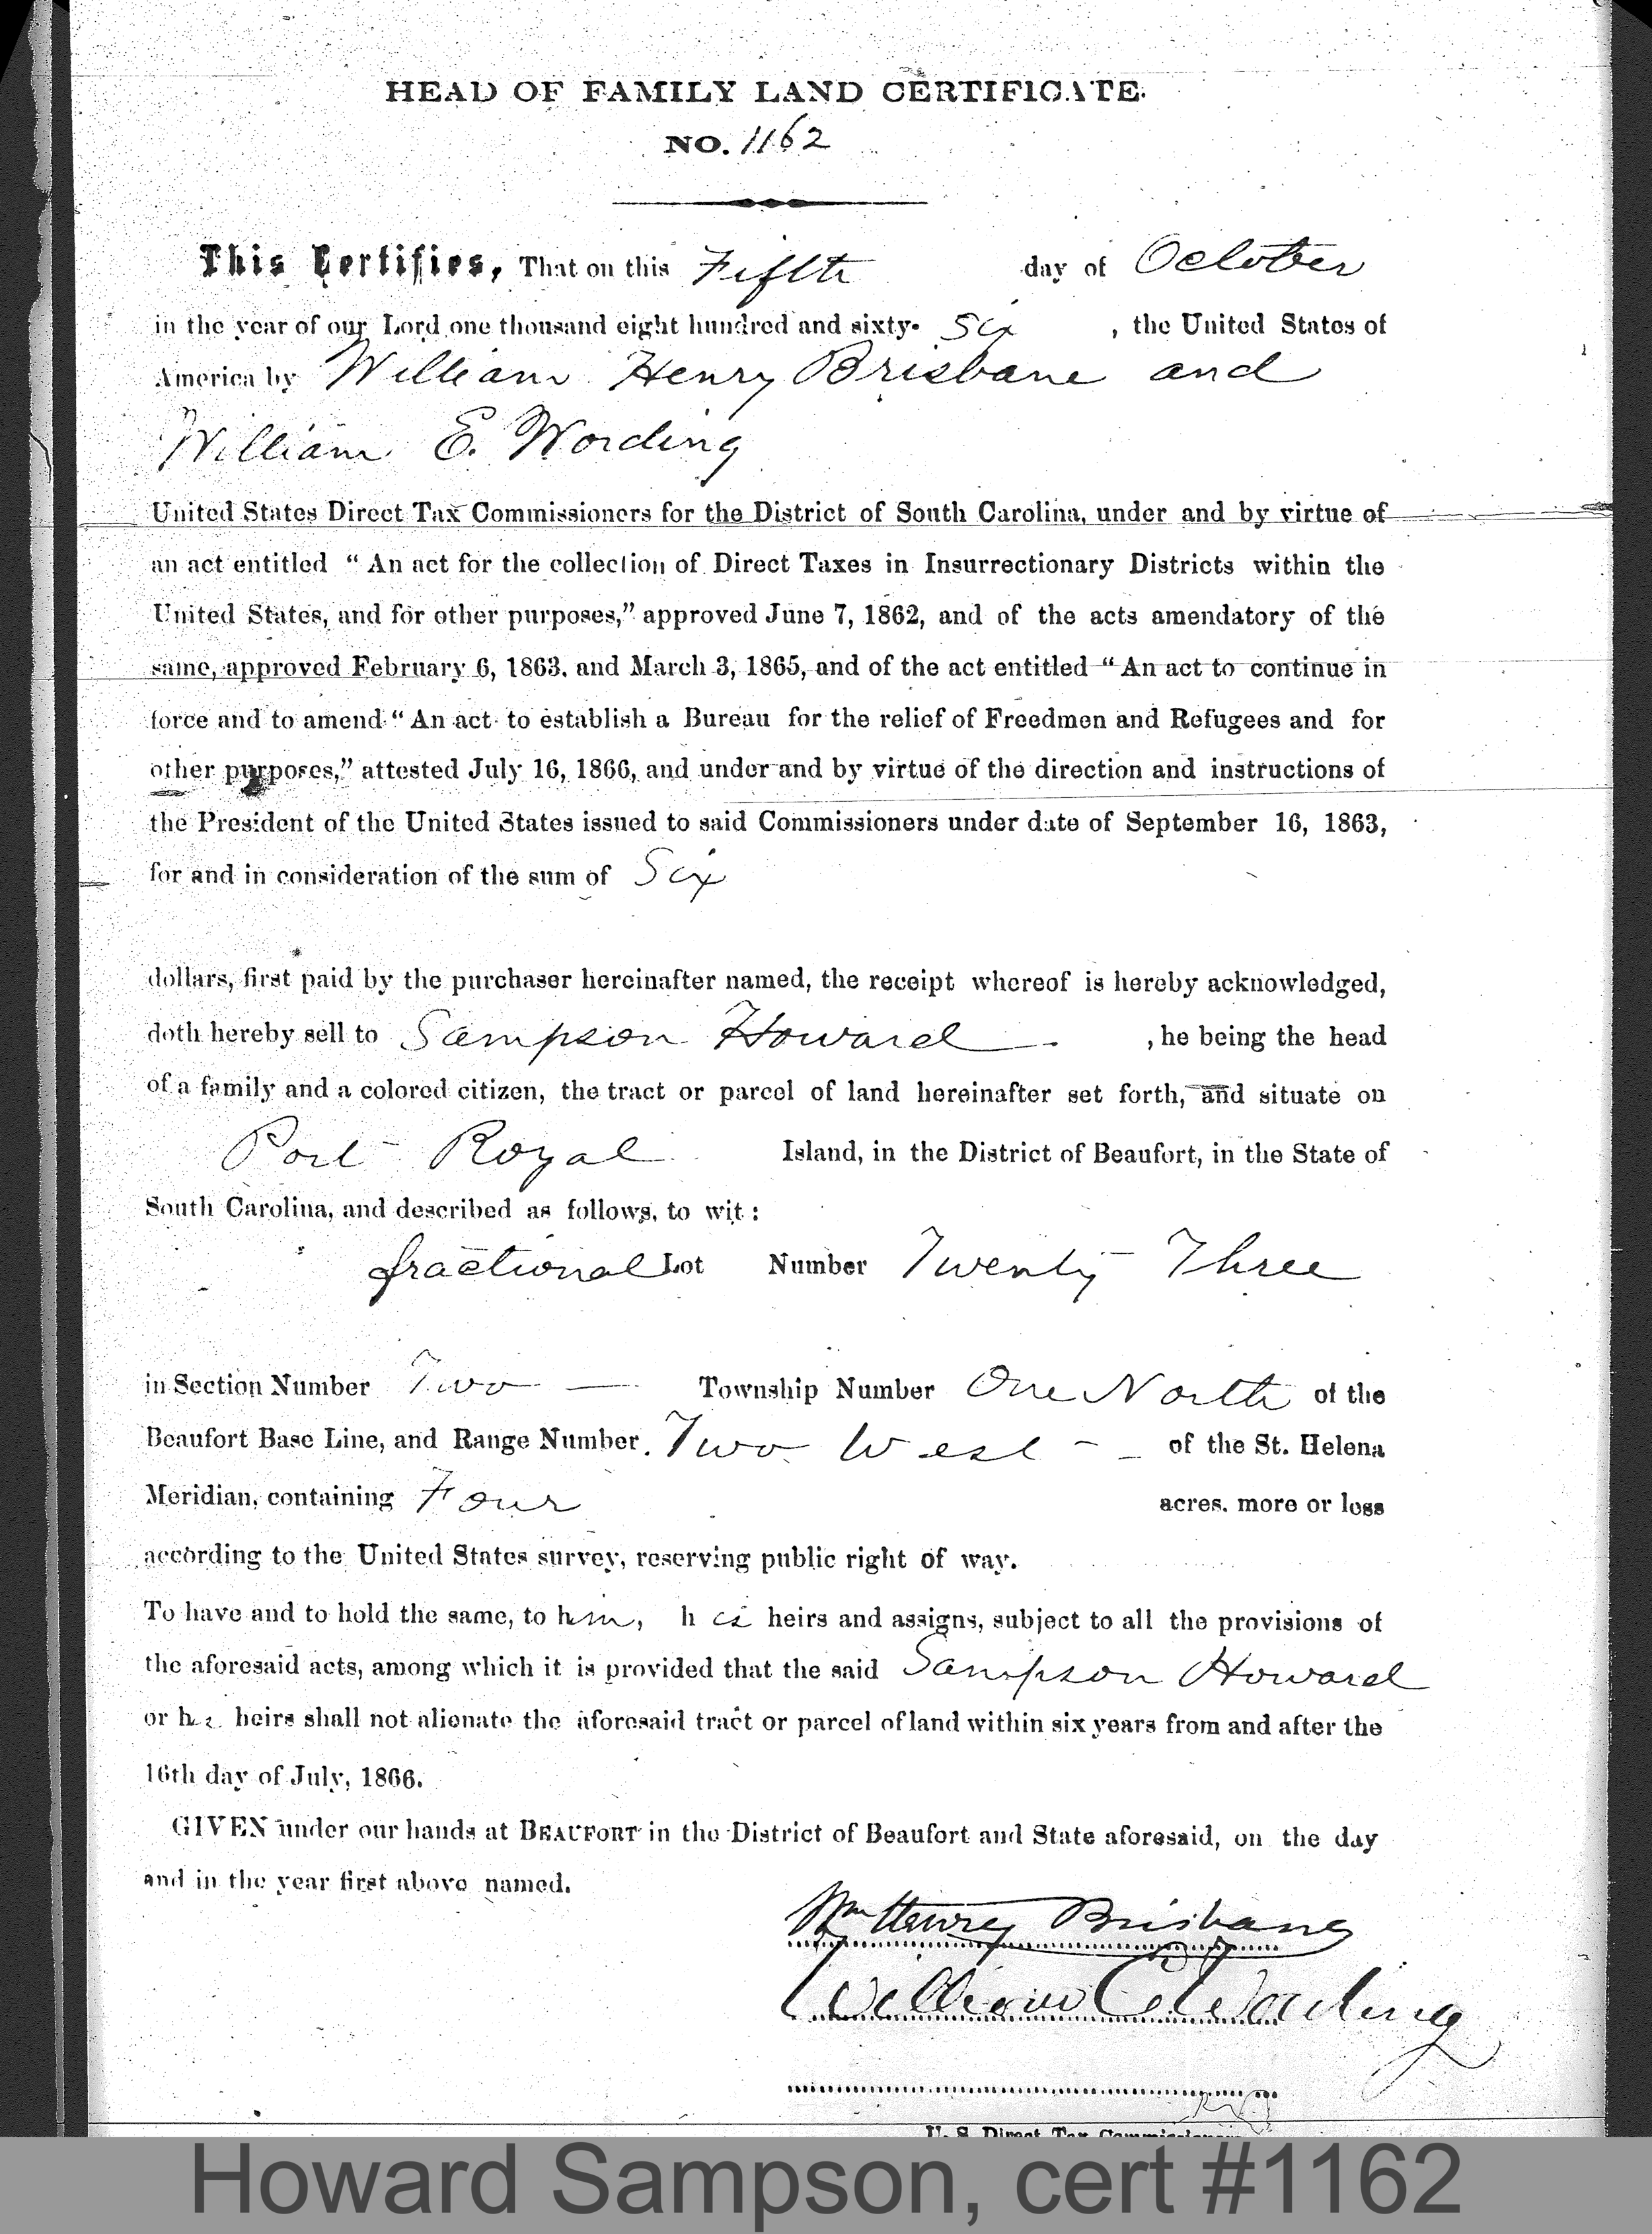 HEAD OF FAMILY LAND CERTIFICATE.
NO. 1162
This Certifies, That on this Fifth day of October
in the year of our Lord one thousand eight hundred and sixty- Six , the United States of
America by William Henry Brisbane and
William E. Wording
United States Direct Tax Commissioners for the District of South Carolina, under and by virtue of
an act entitled “ An act for the collection of Direct Taxes in Insurrectionary Districts within the
United States, and for other purposes,” approved June 7, 1862, and of the acts amendatory of the
same, approved February 6, 1863, and March 3, 1865, and of the act entitled “ An act to continue in
force and to amend “ An act to establish a Bureau for the relief of Freedmen and Refugees and for
other purposes,” attested July 16, 1866, and under and by virtue of the direction and instructions of
the President of the United States issued to said Commissioners under date of September 16, 1863,
for and in consideration of the sum of Six
dollars, first paid by the purchaser hereinafter named, the receipt whereof is hereby acknowledged,
doth hereby sell to Sampson Howard , he being the head
of a family and a colored citizen, the tract or parcel of land hereinafter set forth, and situate on
Port Royal Island, in the District of Beaufort, in the State of
South Carolina, and described as follows, to wit :
fractional Lot Number Twenty Three
in Section Number Two — Township Number One North of the
Beaufort Base Line, and Range Number Two West — of the St. Helena
Meridian, containing Four acres, more or less
according to the United States survey, reserving public right of way.
To have and to hold the same, to him, his heirs and assigns, subject to all the provisions of
the aforesaid acts, among which it is provided that the said Sampson Howard
or his heirs shall not alienate the aforesaid tract or parcel of land within six years from and after the
16th day of July, 1866.
GIVEN under our hands at BEAUFORT in the District of Beaufort and State aforesaid, on the day
and in the year first above named.
Wm Henry Brisbane
William E Wording
U. S. Direct Tax Commissioners
Howard Sampson, cert #1162